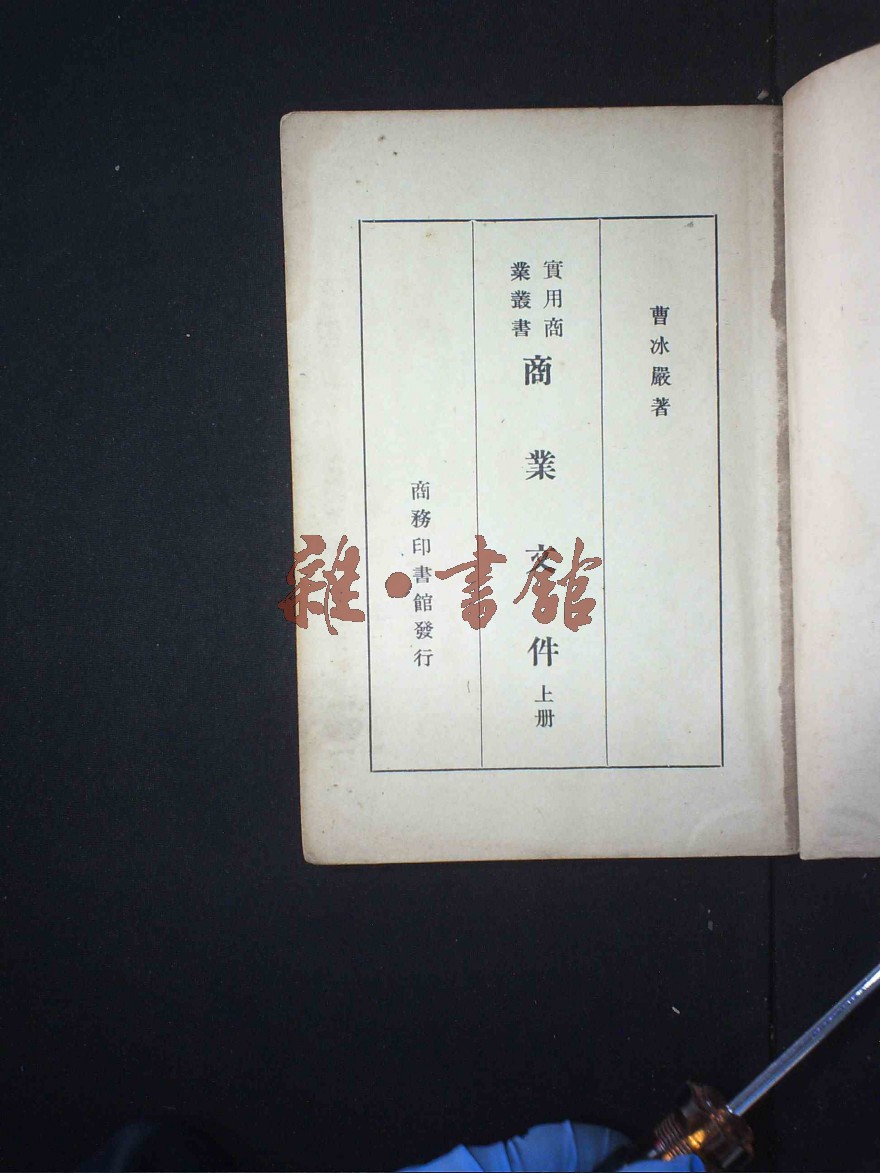 曹冰嚴著
實用商
業叢書
商業文件上册
商務印書館發行
雜·書館